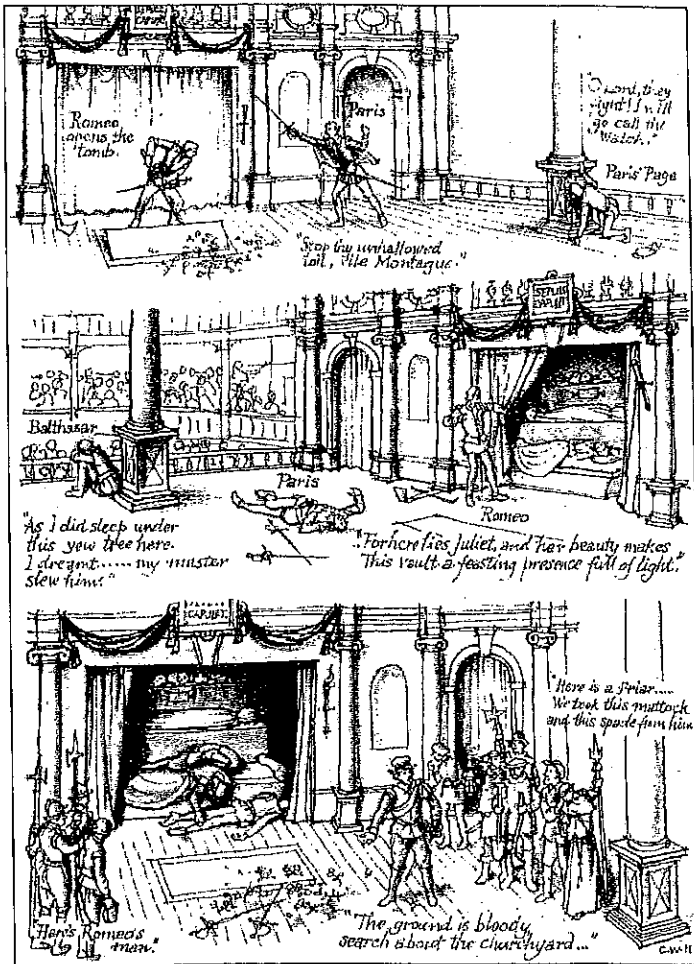 Romeo
opens the
tomb.
Paris
"O Lord, they
fight! I will
go call the
Watch.."
Paris' Page
"Stop thy unhallowed
toil, vile Montague."
Balthasar
Paris
Romeo
"As I did sleep under
this yew tree here.
I dreamt...... my master
slew him."
.."For here lies Juliet, and her beauty makes
This vault a feasting presence full of light."
CAPULET
"Here is a Friar.....
We took this mattock
and this spade from him
"Here's Romeo's
man."
"The ground is bloody,
search about the churchyard..."
C.W.H